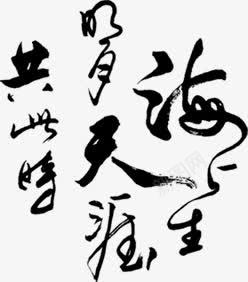 海上生
明月
天涯
共此时